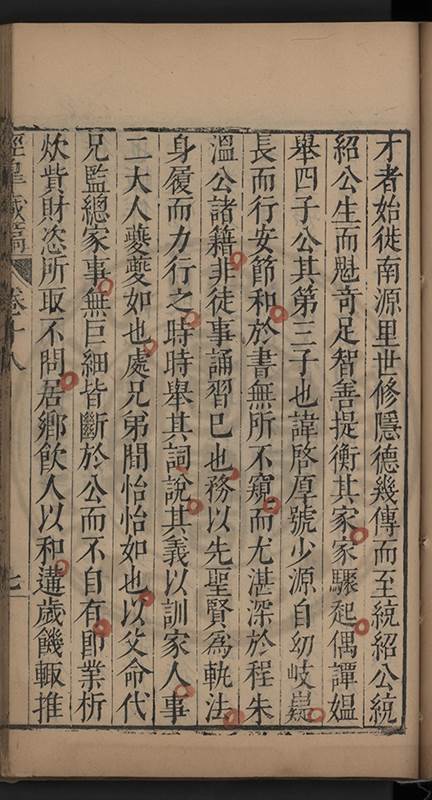 才者始徙南源里世修隱德幾傳而至統紹公統
紹公生而魁奇足智善提衡其家家驟起偶譚媼
舉四子公其第三子也諱啓厚號少源自幼岐嶷
長而行安節和於書無所不窺而尤湛深於程朱
溫公諸籍非徒事誦習已也務以先聖賢為軌法
身履而力行之時時舉其詞說其義以訓家人事
二大人夔夔如也處兄弟間怡怡如也以父命代
兄監總家事無巨細皆斷於公而不自有卽業析
炊貲財恣所取不問居鄉飲人以和遘歲饑輙推
卷十八
七